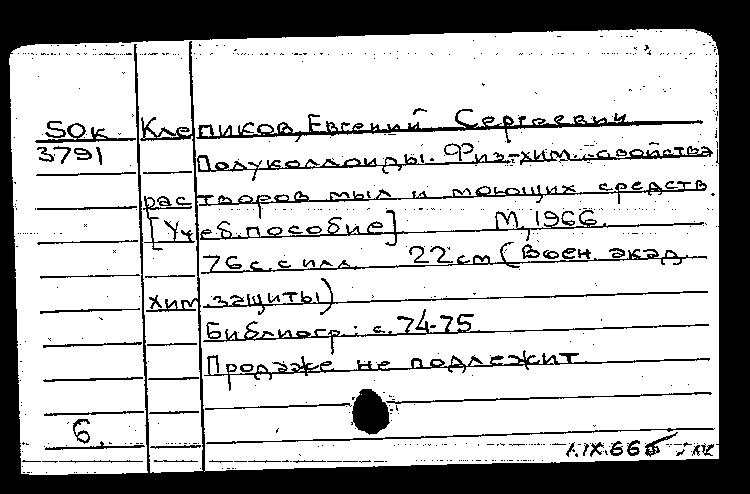 50к Клепиков, Евгений Сергеевич
3791 Полуколлоиды. Физ-хим. свойства
растворов мыл и моющих средств.
[Учеб. пособие] М, 1966.
76 с. с илл. 22 см (Воен. акад.
хим. защиты)
Библиогр: с. 74-75
Продаже не подлежит
6.
1.IX.66